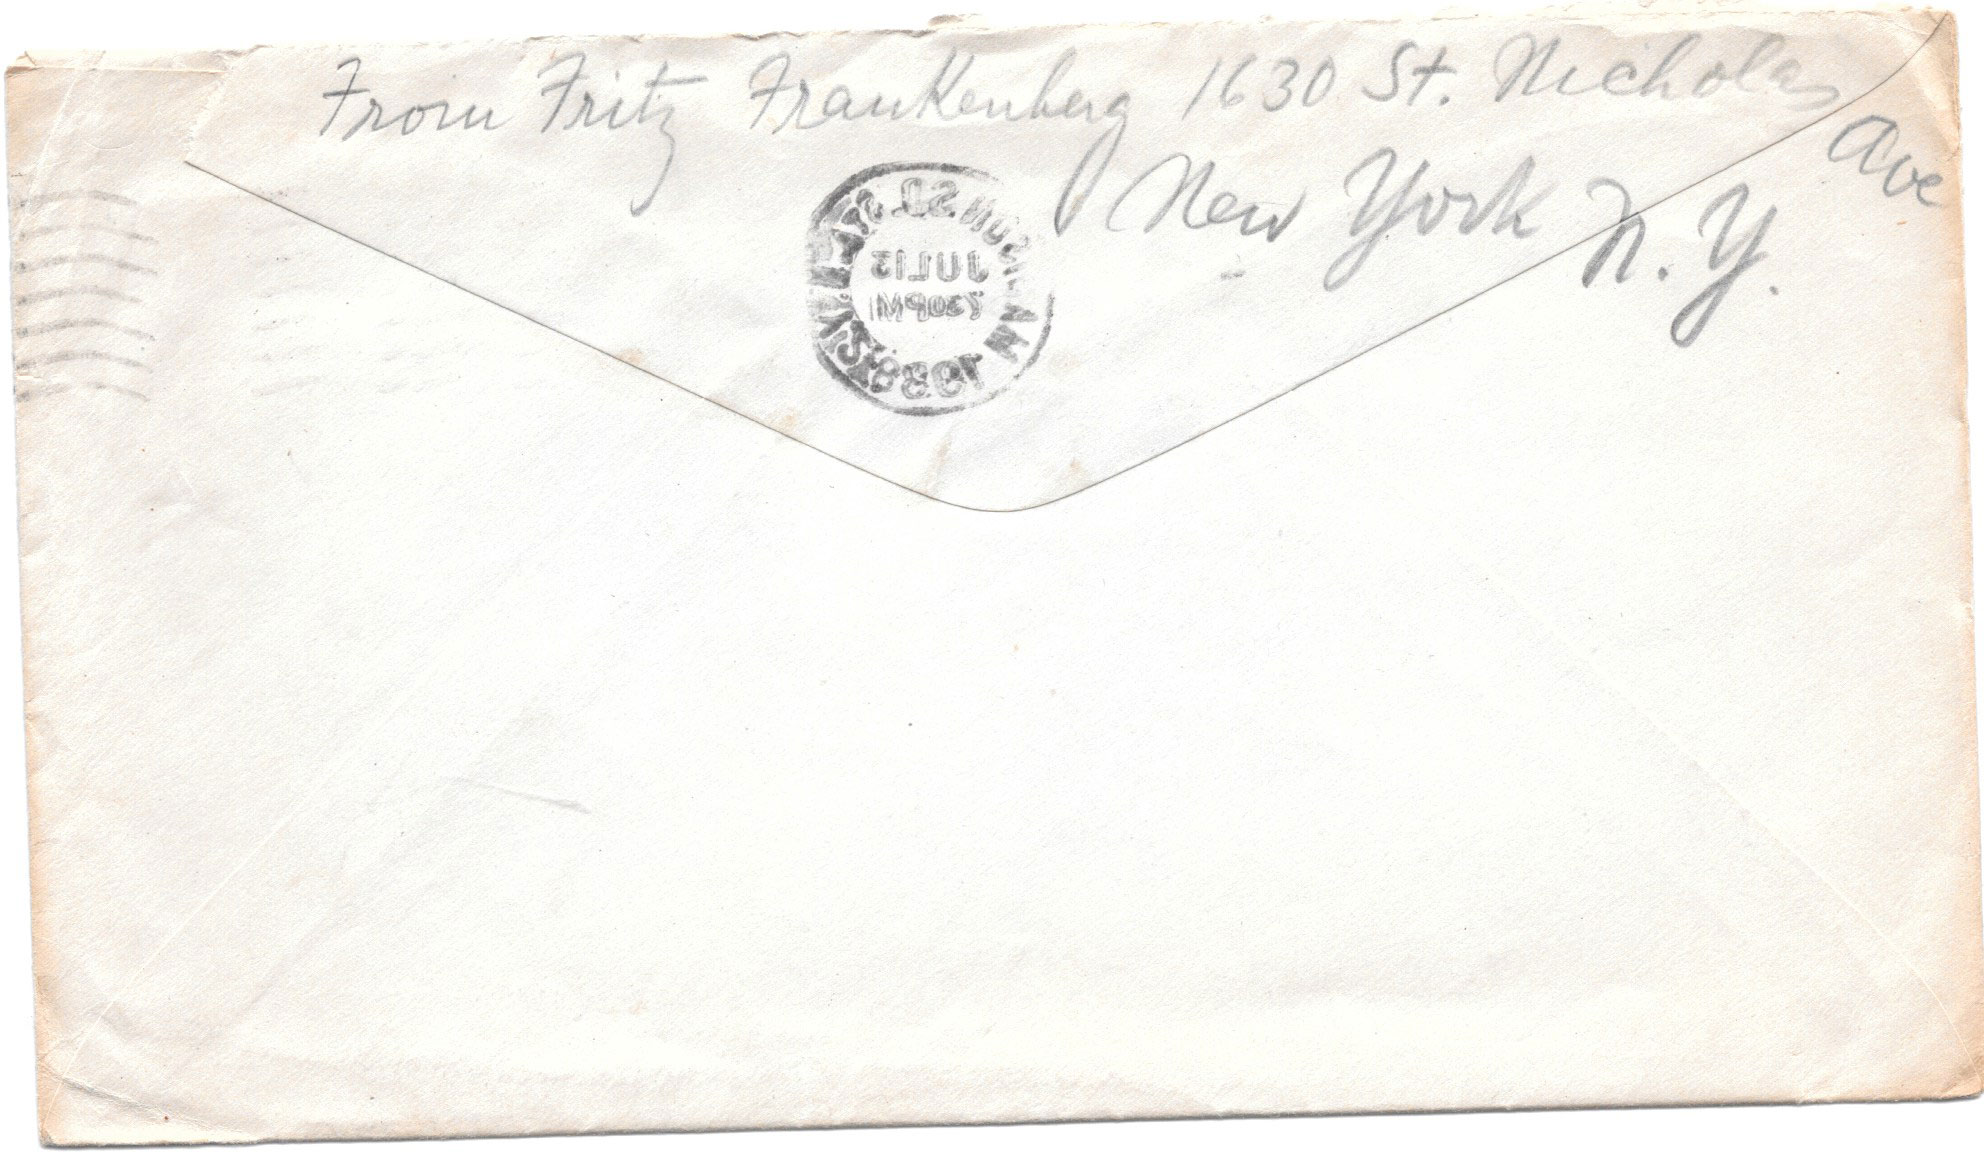 From Fritz Frankenberg 1630 St. Nicholas Ave
New York N. Y.
JUL 12
1938